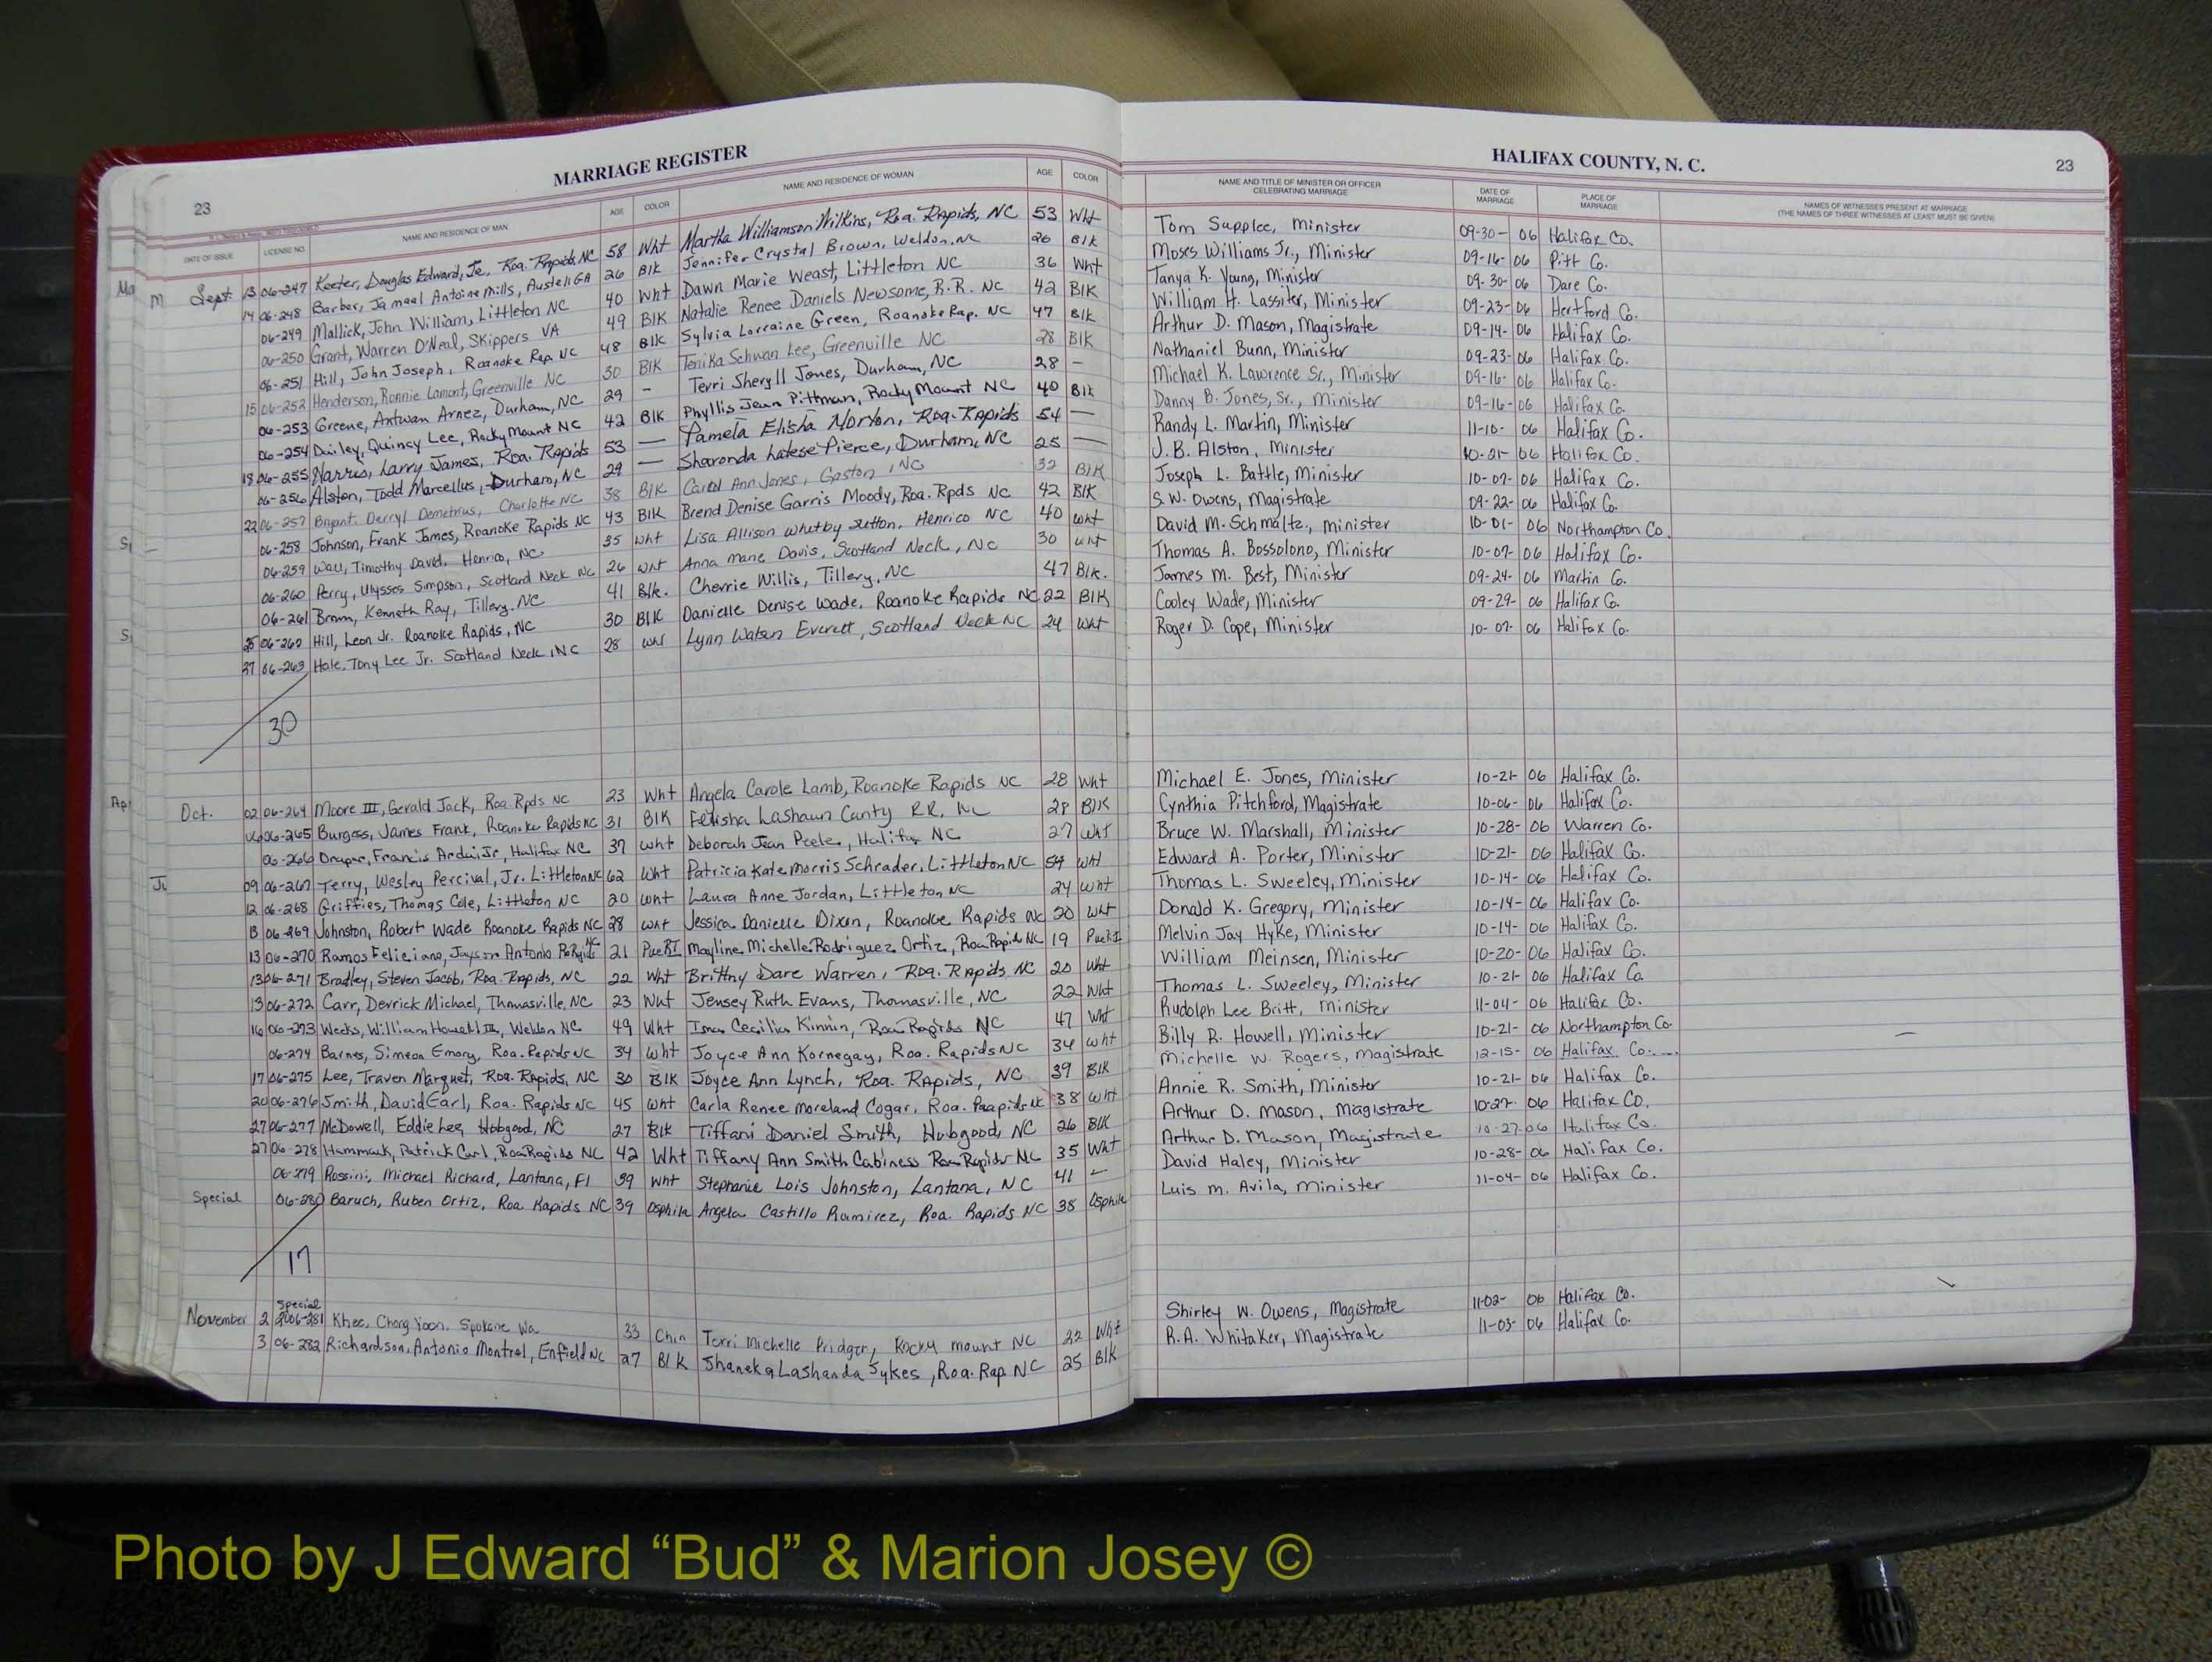 MARRIAGE REGISTER
HALIFAX COUNTY, N. C.
23
23
DATE OF ISSUE LICENSE NO. NAME AND RESIDENCE OF MAN AGE COLOR NAME AND RESIDENCE OF WOMAN AGE COLOR NAME AND TITLE OF MINISTER OR OFFICER CELEBRATING MARRIAGE DATE OF MARRIAGE PLACE OF MARRIAGE NAMES OF WITNESSES PRESENT AT MARRIAGE (THE NAMES OF THREE WITNESSES AT LEAST MUST BE GIVEN)
Sept. 13 06-247 Keeter, Douglas Edward, Jr. Roa. Rapids, NC 58 Wht Martha Williamson Wilkins, Roa. Rapids, NC 53 Wht Tom Supplee, Minister 09-30-06 Halifax Co.
14 06-248 Barber, Jamaal Antoine Mills, Austell GA 26 Blk Jennifer Crystal Brown, Weldon, NC 26 Blk Moses Williams Jr., Minister 09-16-06 Pitt Co.
06-249 Mallick, John William, Littleton NC 40 Wht Dawn Marie Weast, Littleton NC 36 Wht Tanya K. Young, Minister 09-30-06 Dare Co.
06-250 Grant, Warren O'Neal, Skippers VA 49 Blk Natalie Renee Daniels Newsome, R.R. NC 42 Blk William H. Lassiter, Minister 09-23-06 Hertford Co.
06-251 Hill, John Joseph, Roanoke Rap. NC 48 Blk Sylvia Lorraine Green, Roanoke Rap. NC 47 Blk Arthur D. Mason, Magistrate 09-14-06 Halifax Co.
15 06-252 Henderson, Ronnie Lamont, Greenville NC 30 Blk Tenika Schwan Lee, Greenville NC 28 Blk Nathaniel Bunn, Minister 09-23-06 Halifax Co.
06-253 Greene, Antwan Arnez, Durham, NC 29 - Terri Sheryll Jones, Durham, NC 28 - Michael K. Lawrence Sr., Minister 09-16-06 Halifax Co.
06-254 Quincy Lee, Rocky Mount NC 42 Blk Phyllis Jean Pittman, Rocky Mount NC 40 Blk Danny B. Jones, Sr., Minister 09-16-06 Halifax Co.
18 06-255 Harris, Larry James, Roa. Rapids 53 — Pamela Elisha Norton, Roa. Rapids 54 — Randy L. Martin, Minister 11-10-06 Halifax Co.
06-256 Alston, Todd Marcellus, Durham, NC 29 — Sharonda Latese Pierce, Durham, NC 25 — J.B. Alston, Minister 10-21-06 Halifax Co.
22 06-257 Bryant, Derryl Demetrius, Charlotte NC 38 Blk Carol Ann Jones, Gaston, NC 32 Blk Joseph L. Battle, Minister 10-07-06 Halifax Co.
06-258 Johnson, Frank James, Roanoke Rapids NC 43 Blk Brend Denise Garris Moody, Roa. Rpds NC 42 Blk S.W. Owens, Magistrate 09-22-06 Halifax Co.
06-259 Wall, Timothy David, Henrico, NC 35 Wht Lisa Allison Whitby Sutton, Henrico NC 40 Wht David M. Schmaltz, Minister 10-01-06 Northampton Co.
06-260 Perry, Ulysses Simpson, Scotland Neck NC 26 Wht Anna Marie Davis, Scotland Neck, NC 30 Wht Thomas A. Bossolono, Minister 10-07-06 Halifax Co.
06-261 Brown, Kenneth Ray, Tillery, NC 41 Blk. Cherrie Willis, Tillery, NC 47 Blk. James M. Best, Minister 09-24-06 Martin Co.
25 06-262 Hill, Leon Jr. Roanoke Rapids, NC 30 Blk Danielle Denise Wade, Roanoke Rapids NC 22 Blk Cooley Wade, Minister 09-29-06 Halifax Co.
27 06-263 Hale, Tony Lee Jr. Scotland Neck, NC 28 Wht Lynn Watson Everett, Scotland Neck NC 24 Wht Roger D. Cope, Minister 10-07-06 Halifax Co.
30
Oct. 02 06-264 Moore III, Gerald Jack, Roa Rpds NC 23 Wht Angela Carole Lamb, Roanoke Rapids NC 28 Wht Michael E. Jones, Minister 10-21-06 Halifax Co.
06-265 Burgess, James Frank, Roanoke Rapids NC 31 Blk Felisha Lashaun Canty R.R. NC 28 Blk Cynthia Pitchford, Magistrate 10-06-06 Halifax Co.
06-266 Draper, Francis Jr, Halifax NC 37 Wht Deborah Jean Peele, Halifax NC 27 Wht Bruce W. Marshall, Minister 10-28-06 Warren Co.
09 06-267 Terry, Wesley Percival, Jr. Littleton NC 62 Wht Patricia Kate Morris Schrader, Littleton NC 54 Wht Edward A. Porter, Minister 10-21-06 Halifax Co.
12 06-268 Griffies, Thomas Cole, Littleton NC 20 Wht Laura Anne Jordan, Littleton, NC 24 Wht Thomas L. Sweeley, Minister 10-14-06 Halifax Co.
13 06-269 Johnston, Robert Wade Roanoke Rapids NC 28 Wht Jessica Danielle Dixon, Roanoke Rapids NC 20 Wht Donald K. Gregory, Minister 10-14-06 Halifax Co.
13 06-270 Ramos Feliciano, Jayson Antonio Ro Rapids NC 21 PueRI Mayline Michelle Rodriguez Ortiz, Roa Rapids NC 19 PueRI Melvin Jay Hyke, Minister 10-14-06 Halifax Co.
13 06-271 Bradley, Steven Jacob, Roa. Rapids, NC 22 Wht Brittny Dare Warren, Roa. Rapids NC 20 Wht William Meinsen, Minister 10-20-06 Halifax Co.
13 06-272 Carr, Derrick Michael, Thomasville, NC 23 Wht Jensey Ruth Evans, Thomasville, NC 22 Wht Thomas L. Sweeley, Minister 10-21-06 Halifax Co
16 06-273 Weeks, William Howell III, Weldon NC 49 Wht Cecilia Kinnin, Roa Rapids NC 47 Wht Rudolph Lee Britt, Minister 11-04-06 Halifax Co.
06-274 Barnes, Simeon Emory, Roa. Rapids NC 34 Wht Joyce Ann Kornegay, Roa. Rapids NC 34 Wht Billy R. Howell, Minister 10-21-06 Northampton Co
17 06-275 Lee, Traven Marquet, Roa. Rapids, NC 30 Blk Joyce Ann Lynch, Roa. Rapids, NC 39 Blk Michelle W. Rogers, Magistrate 12-15-06 Halifax Co.
20 06-276 Smith, David Earl, Roa. Rapids NC 45 Wht Carla Renee Moreland Cogar, Roa. Raapids NC 38 Wht Annie R. Smith, Minister 10-21-06 Halifax Co.
27 06-277 McDowell, Eddie Lee, Hobgood, NC 27 Blk Tiffani Daniel Smith, Hobgood, NC 26 Blk Arthur D. Mason, Magistrate 10-27-06 Halifax Co.
27 06-278 Hammack, Patrick Carl, Roa Rapids NC 42 Wht Tiffany Ann Smith Cabiness Roa Rapids NC 35 Wht Arthur D. Mason, Magistrate 10-27-06 Halifax Co.
06-279 Rossini, Michael Richard, Lantana, Fl 39 Wht Stephanie Lois Johnston, Lantana, NC 41 — David Haley, Minister 10-28-06 Halifax Co.
Special 06-280 Baruch, Ruben Ortiz, Roa Rapids NC 39 Angela Castillo Ramirez, Roa. Rapids NC 38 Luis M. Avila, Minister 11-04-06 Halifax Co.
17
Special
November 2 2006-281 Khee, Chong Yoon, Spokane Wa 33 Chin Terri Michelle Pridgen, Rocky Mount NC 22 Wht Shirley W. Owens, Magistrate 11-02-06 Halifax Co.
3 06-282 Richardson, Antonio Montrel, Enfield NC 27 Blk Shaneka Lashanda Sykes, Roa. Rap NC 25 Blk R.A. Whitaker, Magistrate 11-03-06 Halifax Co.
Photo by J Edward “Bud” & Marion Josey ©